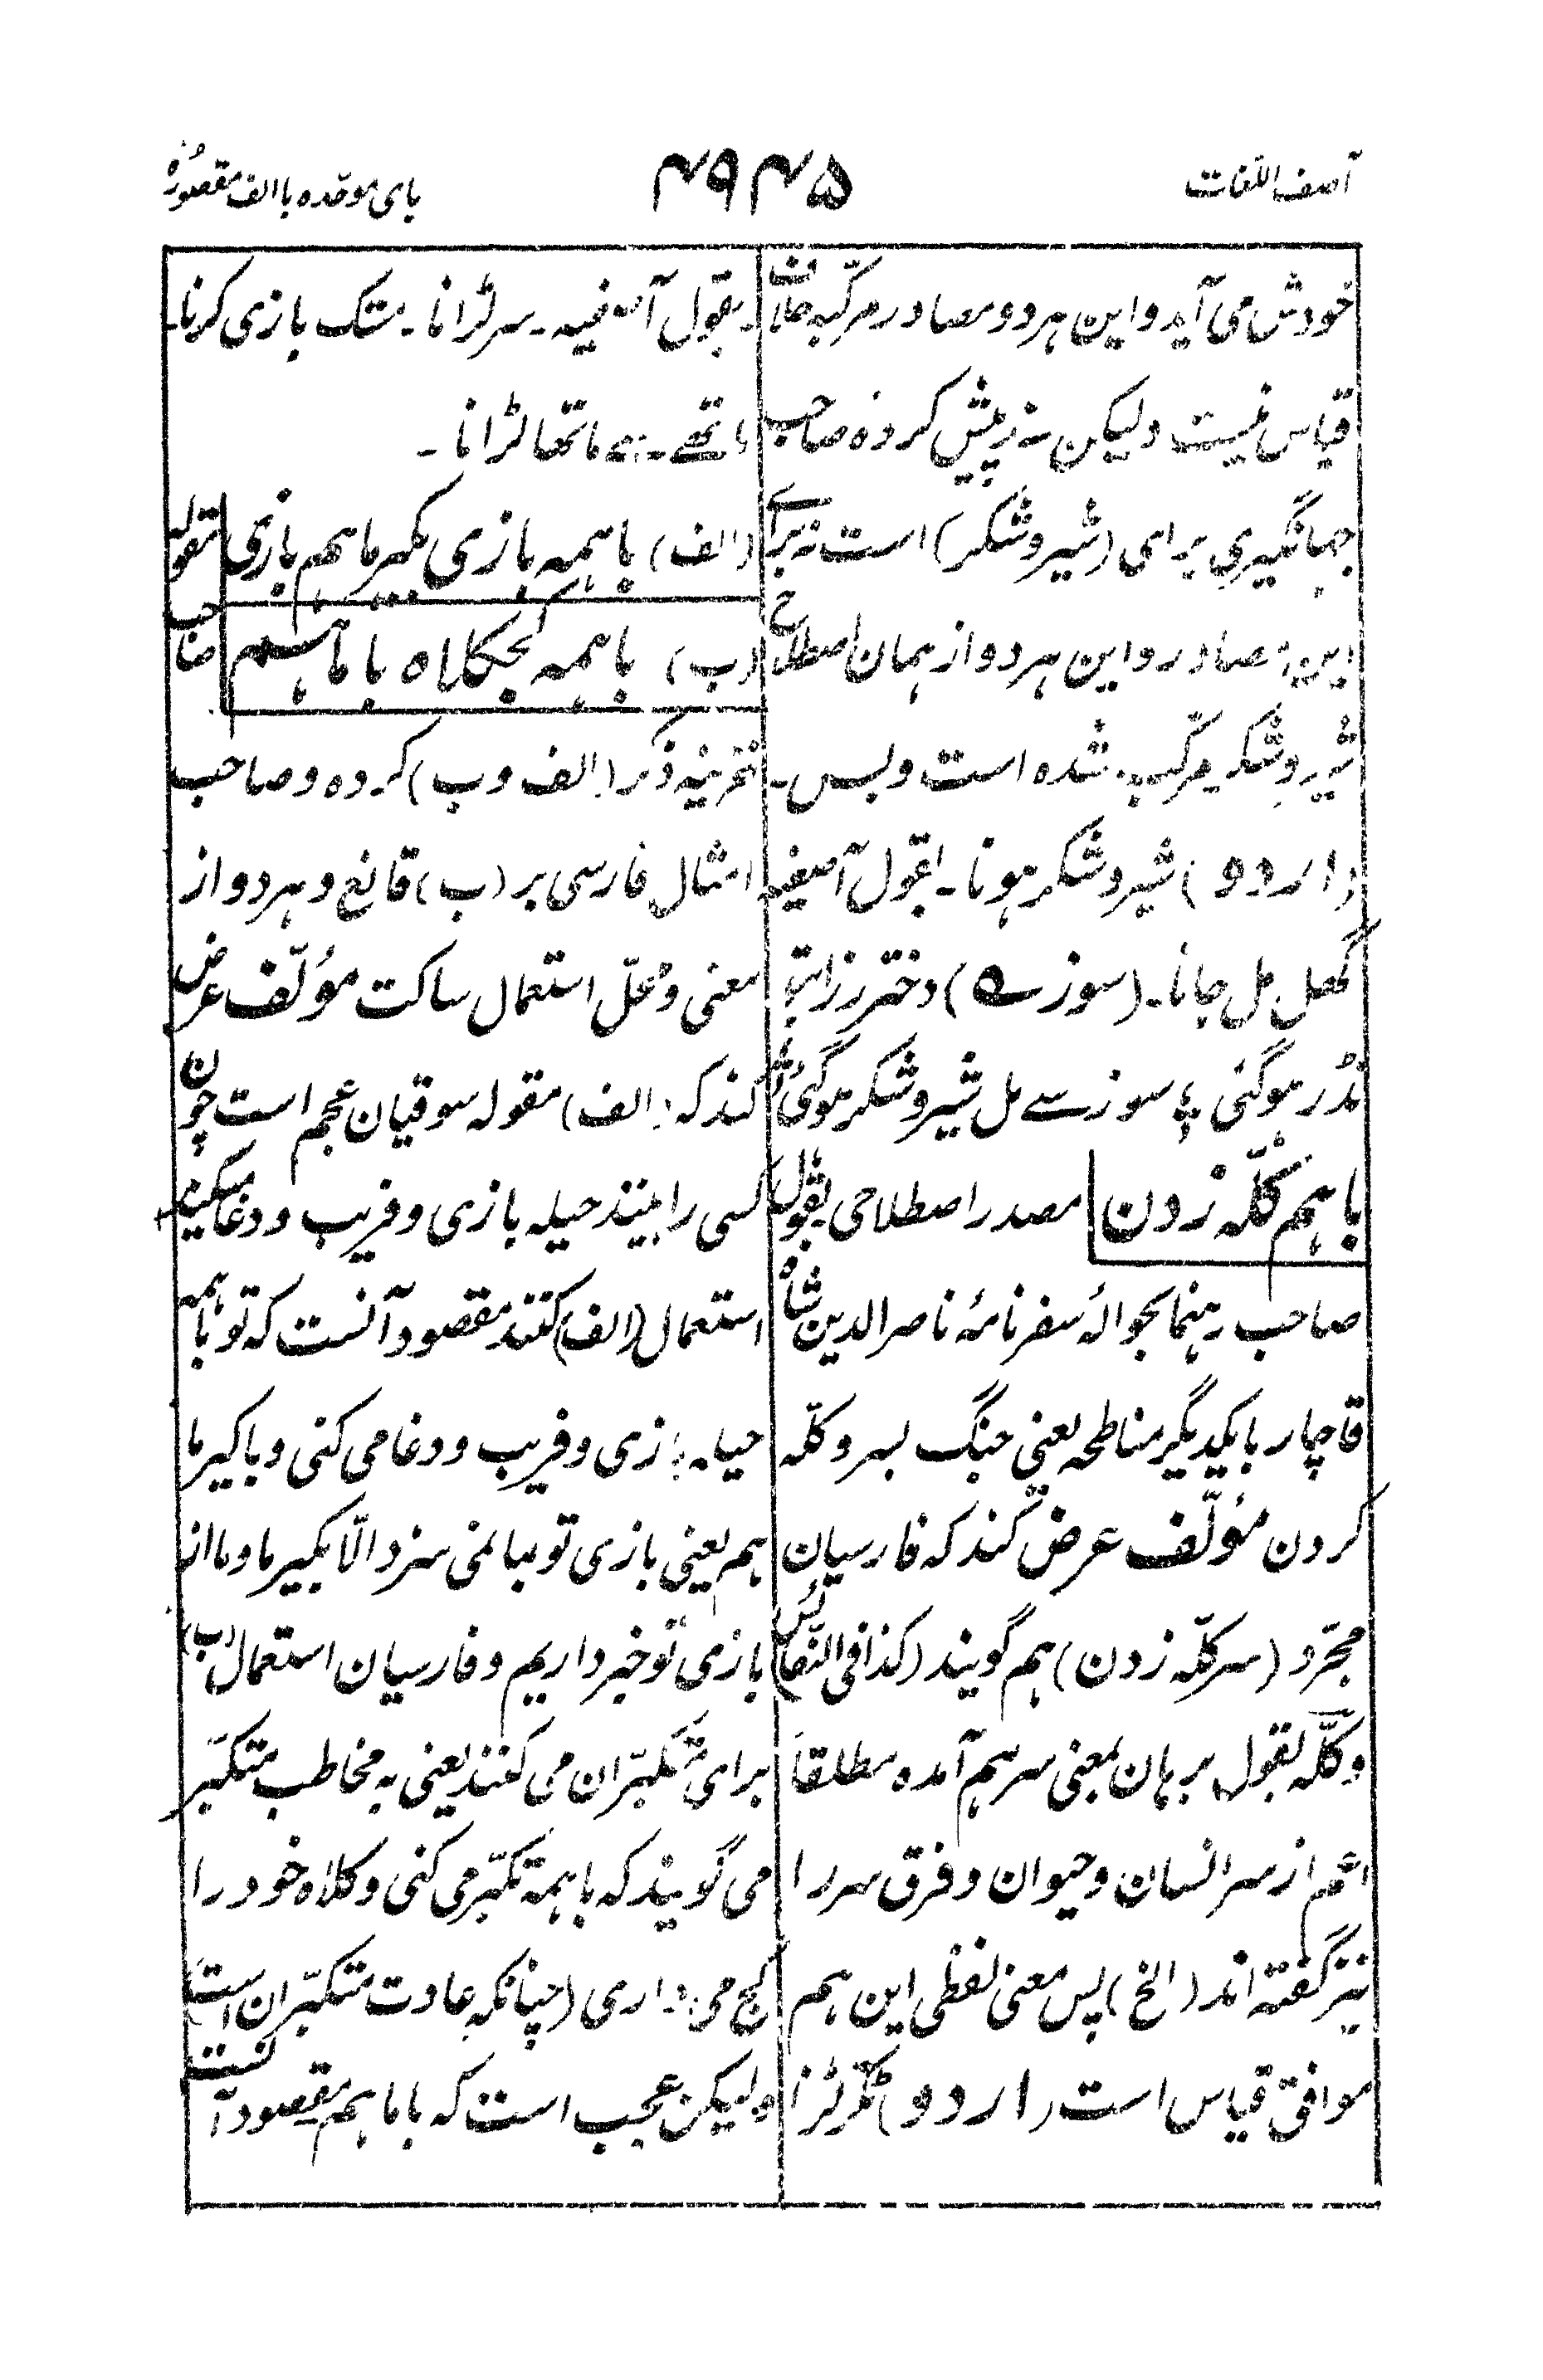 آصف اللغات
۴۹۴۵
بای موحّده با الف مقصورہ
خودش می آید و این ہر دو مصادر مرکّبہ خلاف
قیاس نیست ولیکن سند پیش کردہ صاحب
جہانگیری برای (شیر و شکر) است نہ برای
این مصادر و این ہر دو از ہمان اصطلاح
شیر و شکر مرکّب شدہ است و بس۔
(اردو) شیر و شکر ہونا۔ بقول آصفیہ
گھل مل جانا۔ (سوز ے) دختر رز
نڈر ہوگئی ؛ سوز سے مل شیر و شکر ہوگئی
باہم کلّہ زدن مصدر اصطلاحی بقول
صاحب رہنما بحوالۂ سفرنامۂ ناصر الدین شاہ
قاچار با یکدیگر مناطحہ یعنی جنگ بسر و کلّہ
کردن مؤلّف عرض کند کہ فارسیان
مجرّد (سر کلّہ زدن) ہم گویند (کذا فی النفائس)
و کلّہ بقول برہان بمعنی سر ہم آمدہ مطلقاً
اعم از سر انسان و حیوان و فرق سر را
نیز گفتہ اند (الخ) پس معنی لفظی این ہم
موافق قیاس است (اردو) ٹکّر لڑنا
۔ بقول آصفیہ۔ سر لڑانا۔ متک بازی کرنا۔
ماتھے سے ماتھا لڑانا۔
(الف) با ہمہ بازی بکیر ما ہم بازی مقولہ
(ب) با ہمہ کجکلاہ با ما ہم صاحب
خزینہ ذکر (الف و ب) کردہ و صاحب
امثال فارسی بر (ب) قانع و ہر دو از
معنی و محلّ استعمال ساکت مؤلّف عرض
کند کہ (الف) مقولہ سوقیان عجم است چون
کسی را بینند حیلہ بازی و فریب و دغا میکند
استعمال (الف) کنند مقصود آنست کہ تو با ہمہ
حیلہ بازی و فریب و دغا می کنی و با کیر ما
ہم یعنی بازی تو بما نمی سزد الّا بکیر ما و ما از
بازی تو خبر داریم و فارسیان استعمال (ب)
برای متکبّران می کنند یعنی بہ مخاطب متکبّر
می گویند کہ با ہمہ تکبّر می کنی و کلاہ خود را
کج می داری (چنانکہ عادت متکبّران است)
ولیکن عجب است کہ با ما ہم مقصود آنست